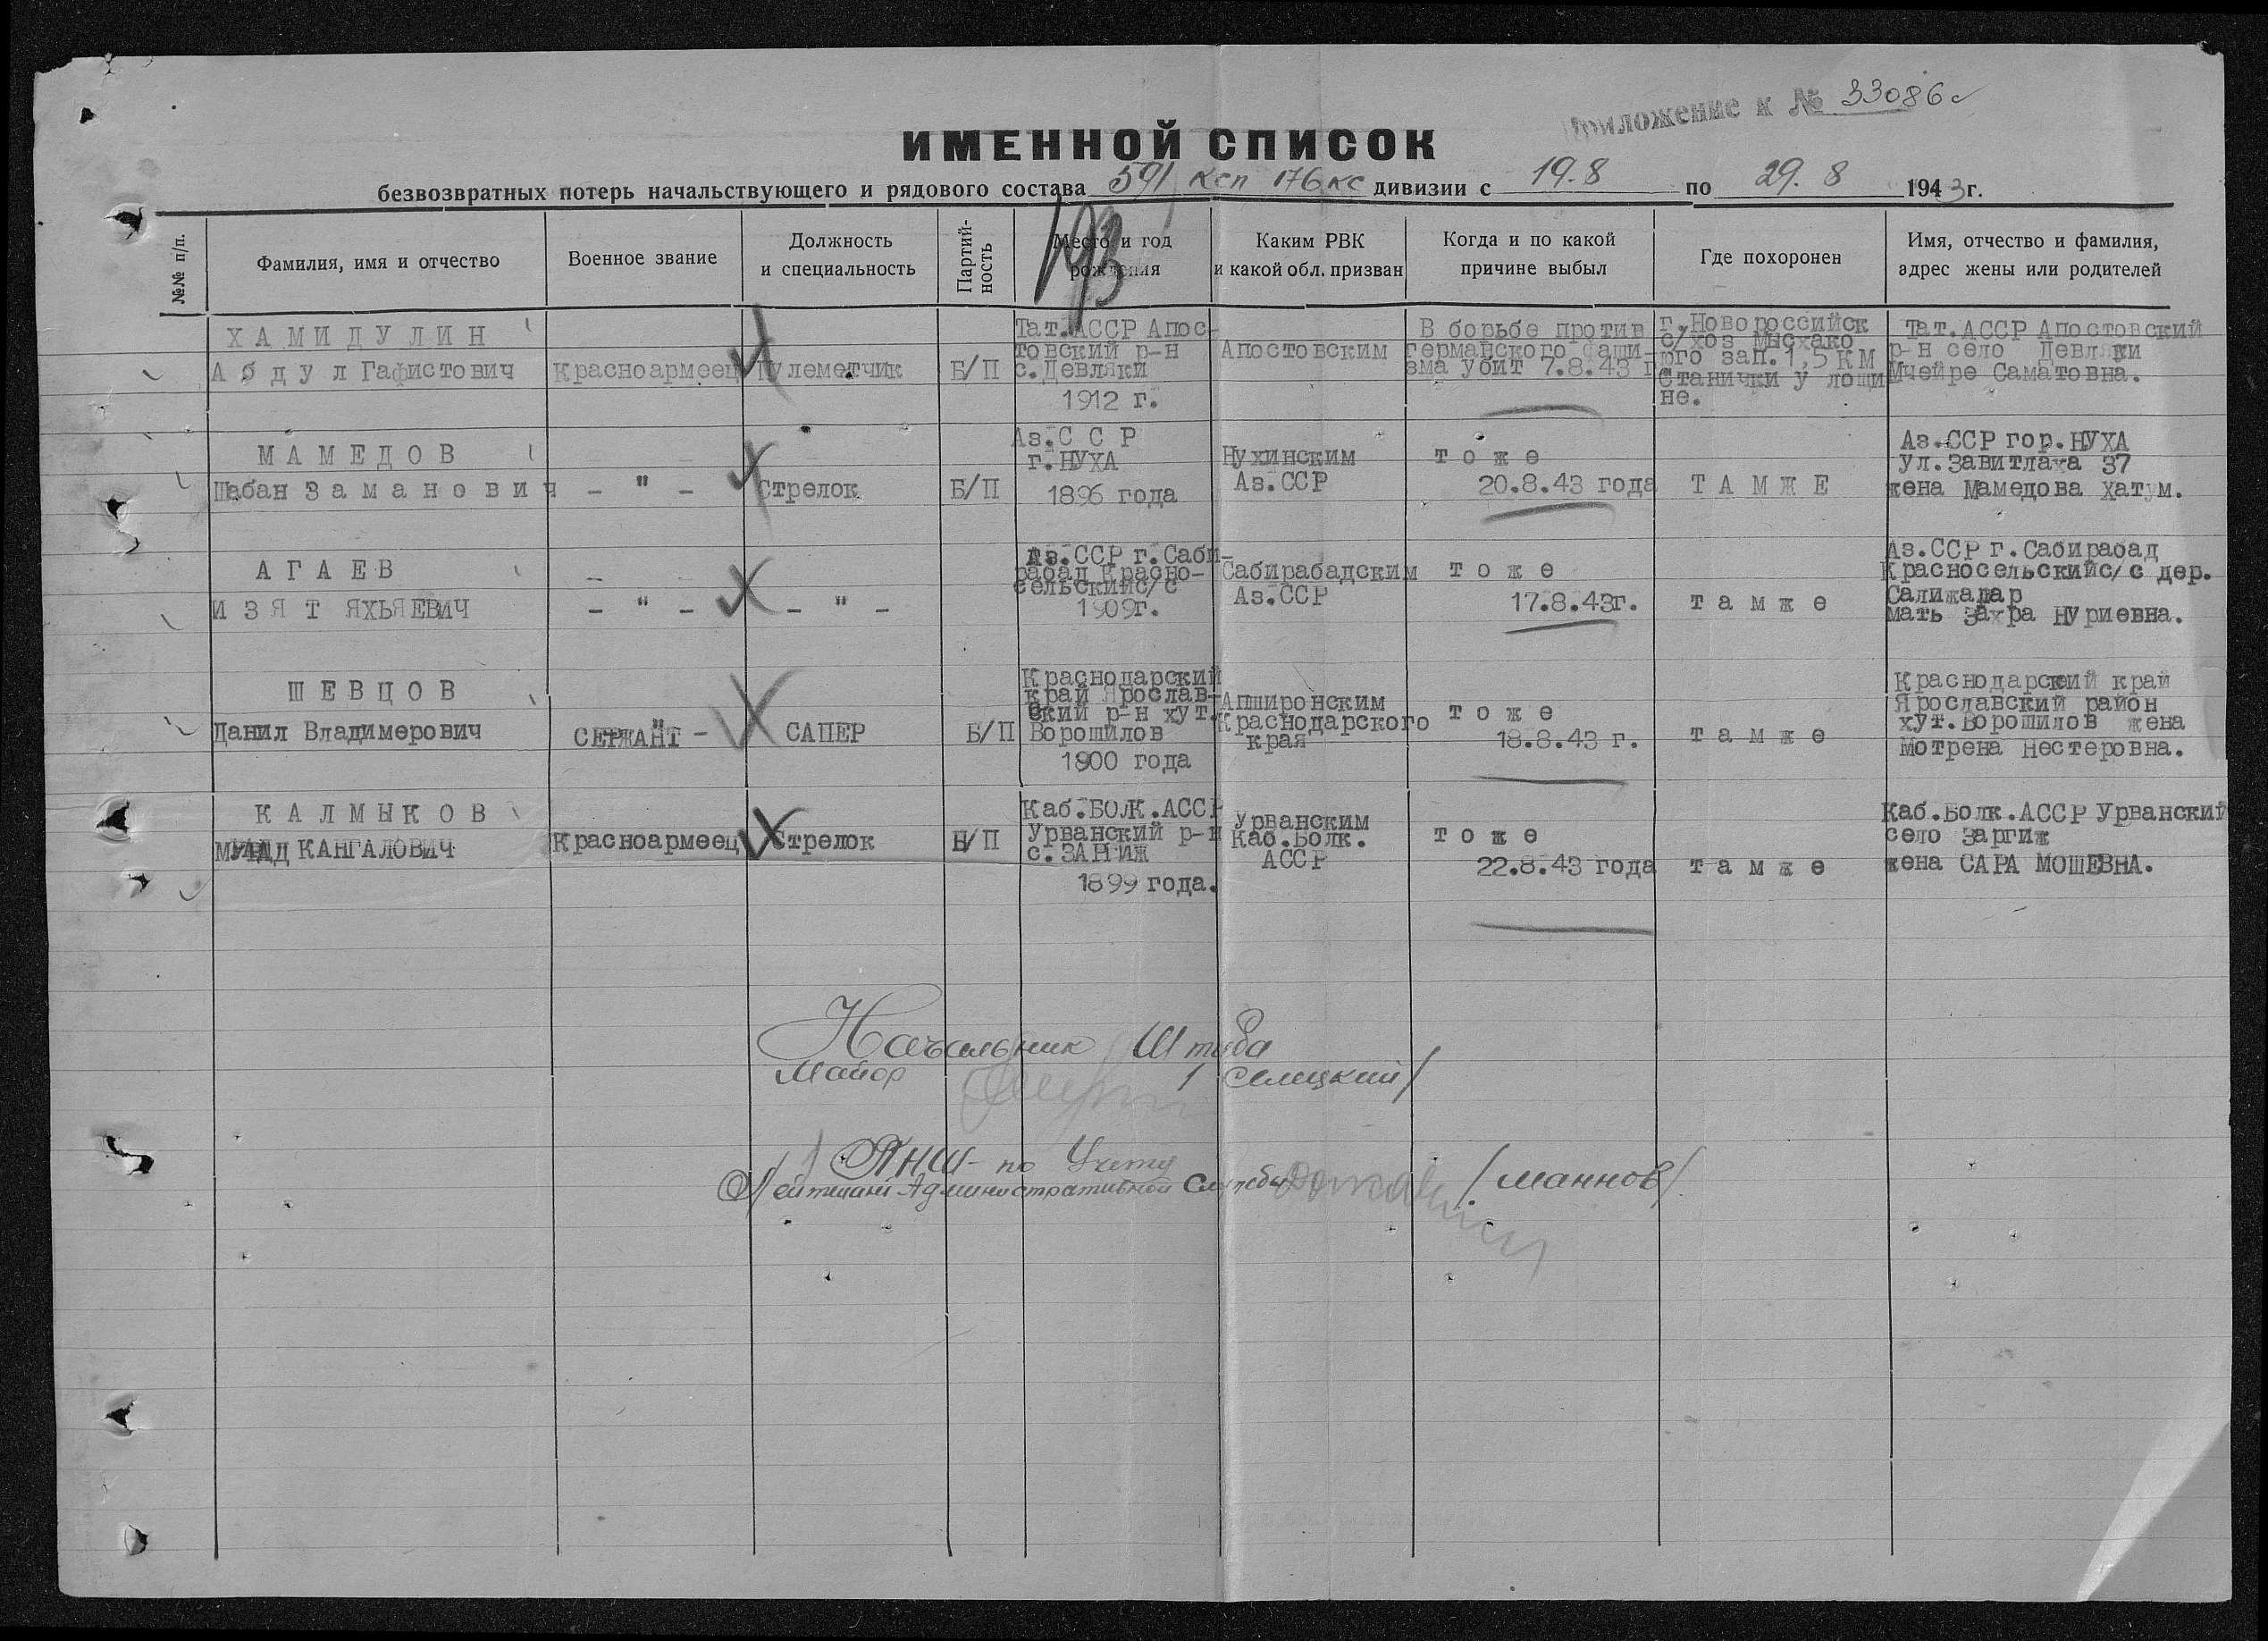 Приложение к № 33086с
ИМЕННОЙ СПИСОК
безвозвратных потерь начальствующего и рядового состава 591 ксп 176 кс дивизии с 19.8 по 29.8 1943г.
193
№№ п/п.
Фамилия, имя и отчество
Военное звание
Должность
и специальность
Партий-
ность
Место и год
рождения
Каким РВК
и какой обл. призван
Когда и по какой
причине выбыл
Где похоронен
Имя, отчество и фамилия,
адрес жены или родителей
ХАМИДУЛИН
Абдул Гафистович
Красноармеец
Пулеметчик
Б/П
Тат.АССР Апос-
товский р-н
с.Девляки
1912 г.
Апостовским
В борьбе против
германского фаши-
зма убит 7.8.43 г
г.Новороссийск
с/хоз Мысхако
юго зап.1,5 КМ
Станички у лощи
не.
Тат.АССР Апостовский
р-н село Девляки
Мчейре Саматовна.
МАМЕДОВ
Шабан Заманович
- " -
Стрелок
Б/П
Аз.С С Р
г.НУХА
1896 года
Нухинским
Аз.ССР
тоже
20.8.43 года
ТАМЖЕ
Аз.ССР гор.НУХА
ул.Завитлаха 37
жена Мамедова Хатум.
АГАЕВ
ИЗЯТ ЯХЬЯЕВИЧ
- " -
- " -
Аз.ССР г.Саби-
рабад Красно-
сельскийс/с
1909г.
Сабирабадским
Аз.ССР
тоже
17.8.43г.
тамже
Аз.ССР г.Сабирабад
Красносельскийс/с дер.
Салижалар
мать Захра Нуриевна.
ШЕВЦОВ
Данил Владимерович
СЕРЖАНТ -
САПЕР
Б/П
Краснодарский
край Ярослав-
ский р-н хут.
Ворошилов
1900 года
Апширонским
Краснодарского
края
тоже
18.8.43 г.
тамже
Краснодарский край
Ярославский район
хут.Ворошилов жена
Мотрена Нестеровна.
КАЛМЫКОВ
КАНГАЛОВИЧ
Красноармеец
Стрелок
Б/П
Каб.БОЛК.АССР
Урванский р-н
с.ЗАРГИЖ
1899 года.
Урванским
Каб.Болк.
АССР
тоже
22.8.43 года
тамже
Каб.Болк.АССР Урванский
село Заргиж
жена САРА МОШЕВНА.
Начальник Штаба
Майор /Селицкий/
ПНШ- по Учету
Лейтенант Административной Службы /Маннов/